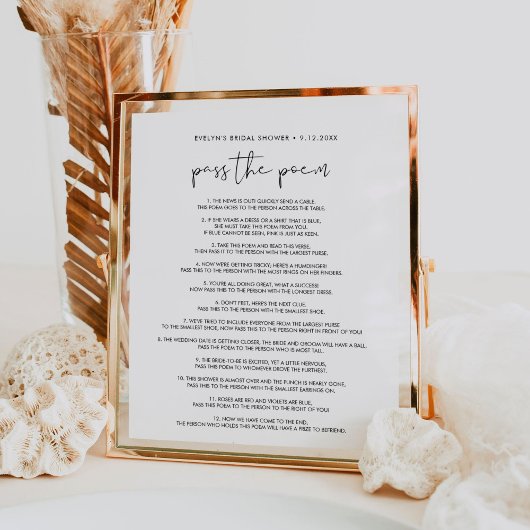 EVELYN'S BRIDAL SHOWER • 9.12.20XX
pass the poem
1. THE NEWS IS OUT! QUICKLY SEND A CABLE.
THIS POEM GOES TO THE PERSON ACROSS THE TABLE.
2. IF SHE WEARS A DRESS OR A SHIRT THAT IS BLUE,
SHE MUST TAKE THIS POEM FROM YOU.
IF BLUE CANNOT BE SEEN, PINK IS JUST AS KEEN.
3. TAKE THIS POEM AND READ THIS VERSE,
THEN PASS IT TO THE PERSON WITH THE LARGEST PURSE.
4. NOW WE'RE GETTING TRICKY; HERE'S A HUMDINGER!
PASS THIS TO THE PERSON WITH THE MOST RINGS ON HER FINGERS.
5. YOU'RE ALL DOING GREAT, WHAT A SUCCESS!
NOW PASS THIS TO THE PERSON WITH THE LONGEST DRESS.
6. DON'T FRET, HERE'S THE NEXT CLUE,
PASS THIS TO THE PERSON WITH THE SMALLEST SHOE.
7. WE'VE TRIED TO INCLUDE EVERYONE FROM THE LARGEST PURSE
TO THE SMALLEST SHOE, NOW PASS THIS TO THE PERSON RIGHT IN FRONT OF YOU!
8. THE WEDDING DATE IS GETTING CLOSER, THE BRIDE AND GROOM WILL HAVE A BALL.
PASS THE POEM TO THE PERSON WHO IS MOST TALL.
9. THE BRIDE-TO-BE IS EXCITED, YET A LITTLE NERVOUS,
PASS THIS POEM TO WHOMEVER DROVE THE FURTHEST.
10. THIS SHOWER IS ALMOST OVER AND THE PUNCH IS NEARLY GONE,
PASS THIS TO THE PERSON WITH THE SMALLEST EARRINGS ON.
11. ROSES ARE RED AND VIOLETS ARE BLUE,
PASS THIS POEM TO THE PERSON TO THE RIGHT OF YOU!
12. NOW WE HAVE COME TO THE END,
THE PERSON WHO HOLDS THIS POEM WILL HAVE A PRIZE TO BEFRIEND.